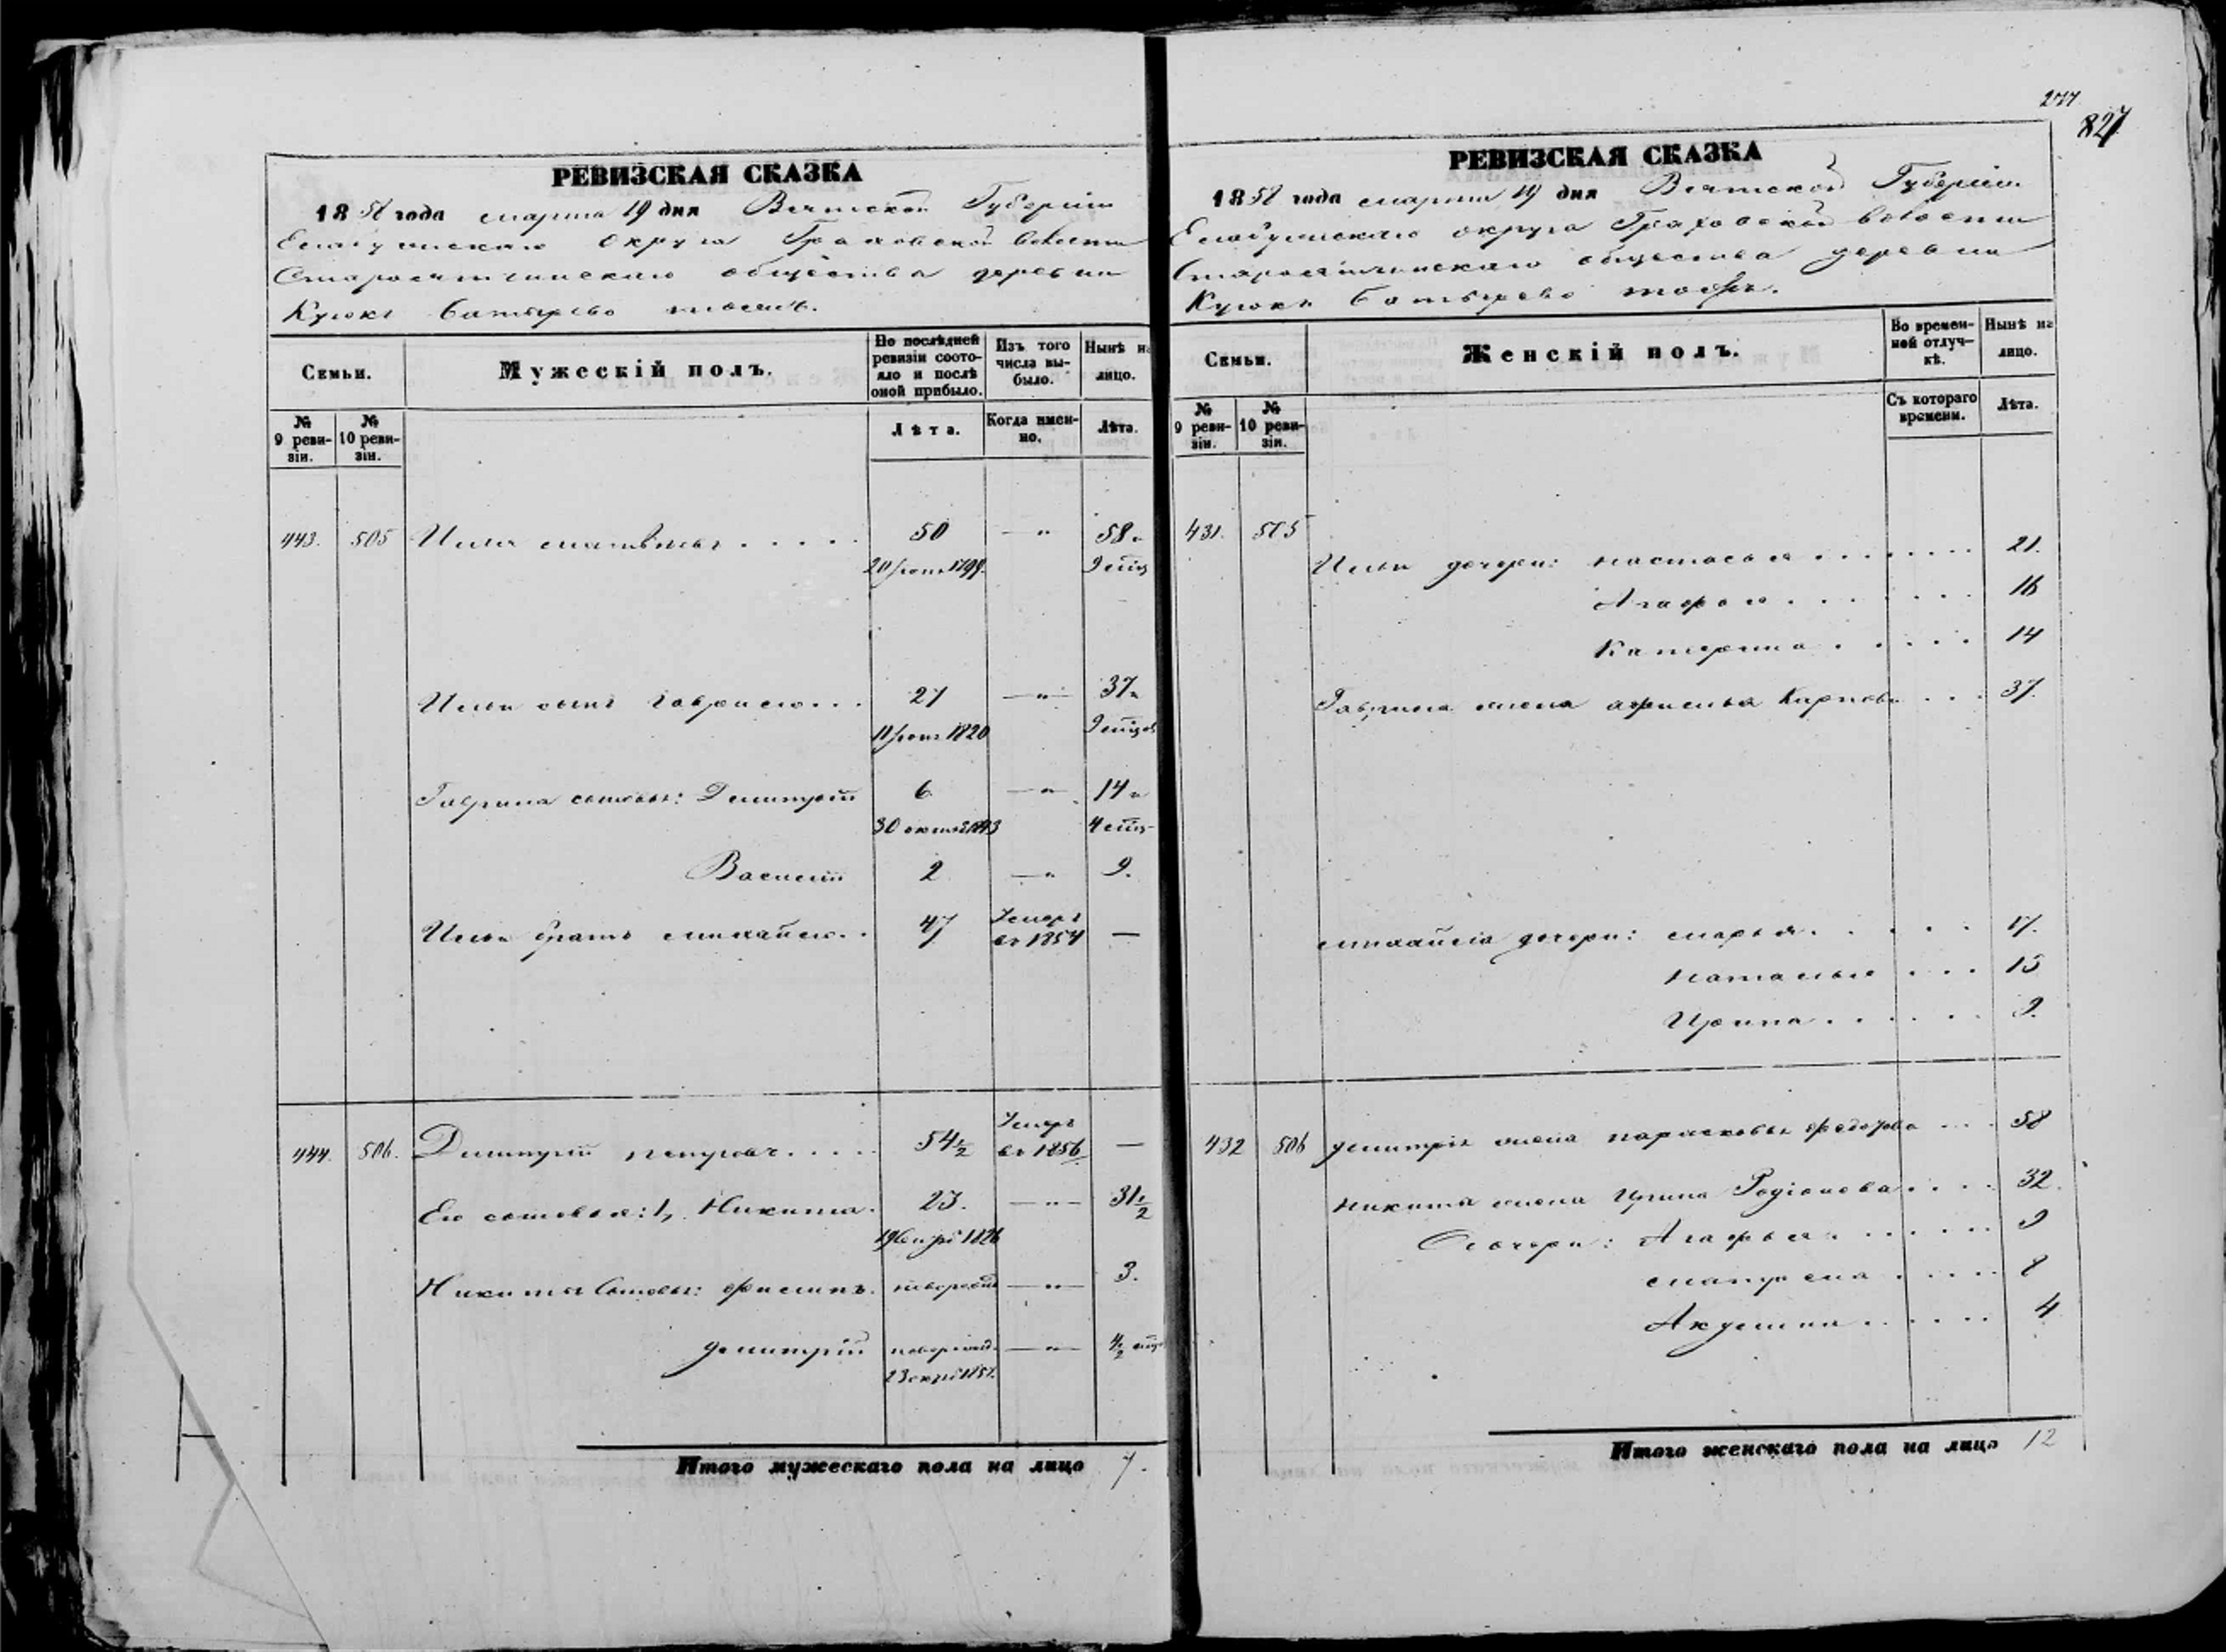 РЕВИЗСКАЯ СКАЗКА
1858 года марта 19 дня Вятской Губерніи
Елабужскаго округа Граховской волости
общества деревни
тожъ.
Семьи.
Мужескій полъ.
По послѣдней ревизіи состояло и послѣ оной прибыло.
Изъ того числа выбыло.
Нынѣ на лицо.
№ 9 ревизіи.
№ 10 ревизіи.
Лѣта.
Когда именно.
Лѣта.
443. 505 Илья Матвѣевъ 50 — " 58.
20 1799. 9
Ильи сынъ Гаврило 27 — " — 37
11 1820 9
Гаврила сыновья: Димитрій 6 — " 14
30 октя 1843 4
Василій 2 — " 9.
Ильи братъ Михайло 47 Умеръ въ 1854 —
444. 506. Димитрій Петровъ 54½ Умеръ въ 1856 —
Его сыновья: 1, Никита 23. — " — 31½
19 1826
Никиты Сыновья: Филипъ новорожд — " — 3.
Димитрій новорожд. — " —
23
Итого мужескаго пола на лицо 7.
277
827
РЕВИЗСКАЯ СКАЗКА
1858 года марта 19 дня Вятской Губерніи
Елабужскаго округа Граховской волости
общества деревни
тожъ.
Семьи.
Женскій полъ.
Во временной отлучкѣ.
Нынѣ на лицо.
№ 9 ревизіи.
№ 10 ревизіи.
Съ котораго времени.
Лѣта.
431. 505
Ильи дочери: Настасья 21.
Агафья 16
Катерина 14
Гаврила жена Карпова 37.
Михайла дочери: Марья 17.
Наталья 15
Ирина 9.
432 506 Димитрія жена Парасковья Федотова 58
Никиты жена Ирина Родіонова 32.
дочери: Агафья 9
Матрена 8
Акулина 4
Итого женскаго пола на лицо 12